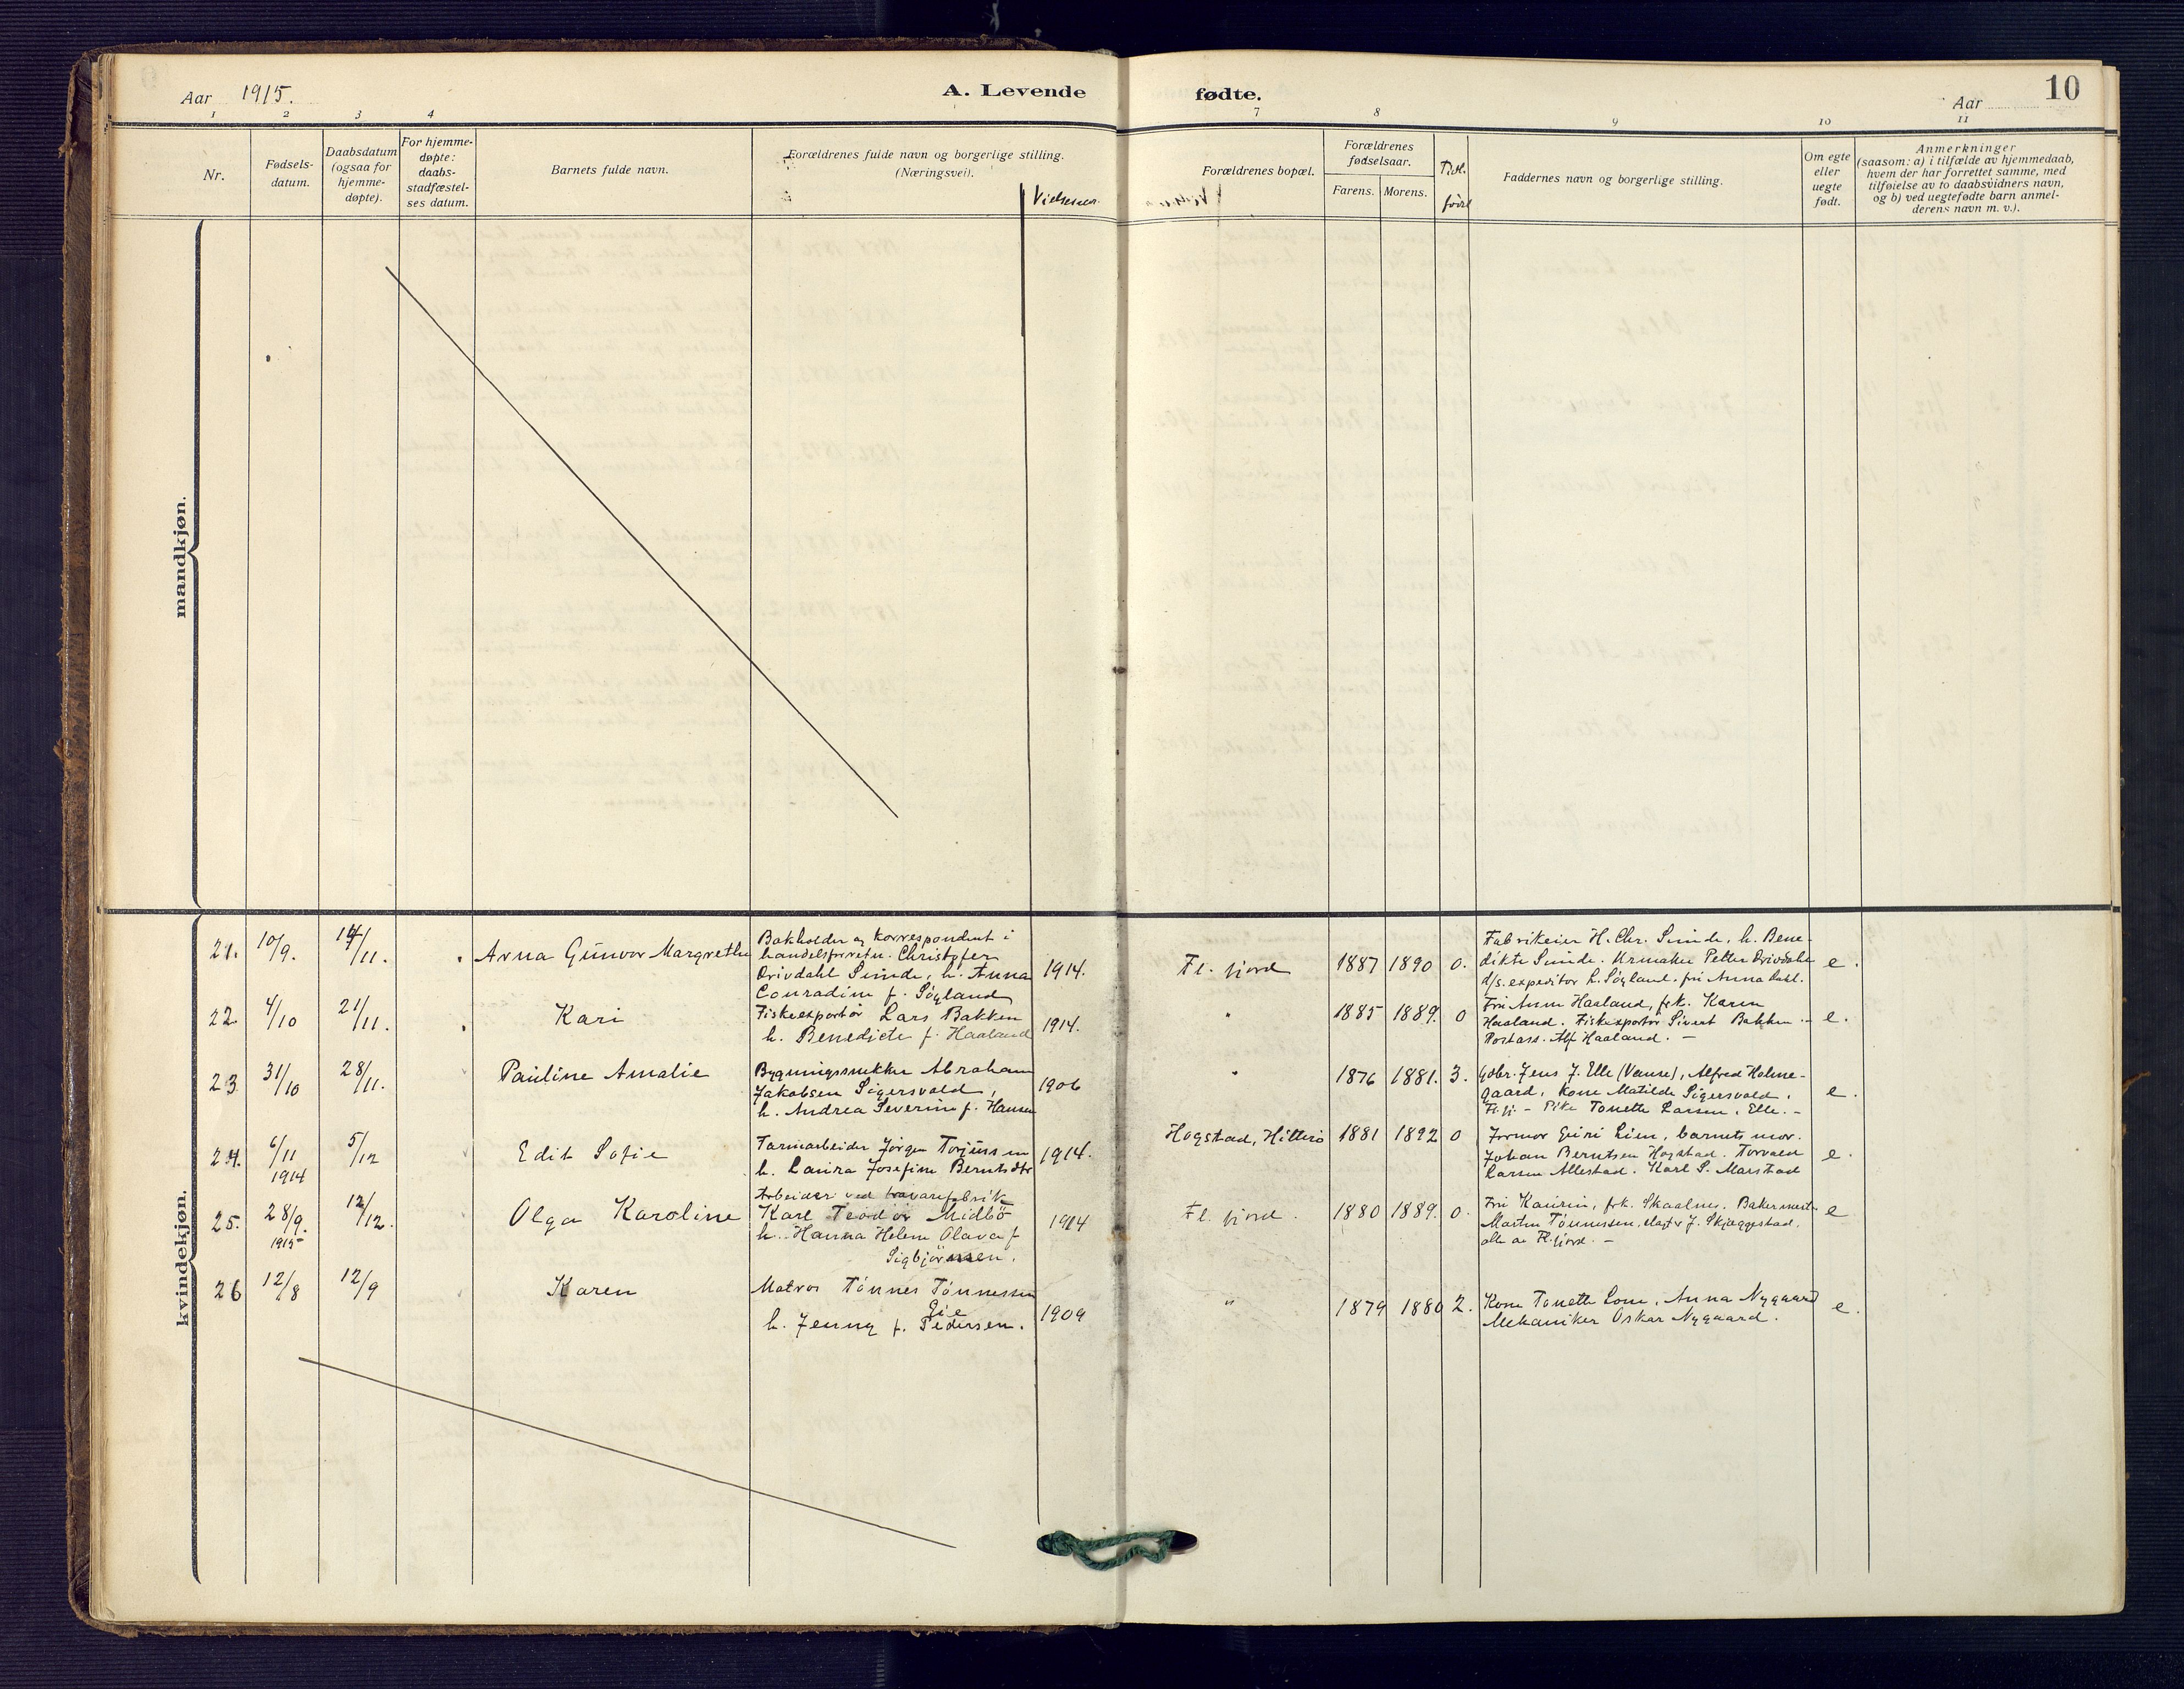 Aar 1915.
A. Levende
fødte.
Aar
10
1 2 3 4
7 8 9 10 11
Nr.
Fødsels-
datum.
Daabsdatum
(ogsaa for
hjemme-
døpte).
For hjemme-
døpte:
daabs-
stadfæstel-
ses datum.
Barnets fulde navn.
Forældrenes fulde navn og borgerlige stilling.
(Næringsvei).
Vielsesaar.
Forældrenes bopæl.
Forældrenes
fødselsaar.
Farens. Morens.
Tidl.
født
Faddernes navn og borgerlige stilling.
Om egte
eller
uegte
født.
Anmerkninger
(saasom: a) i tilfælde av hjemmedaab,
hvem der har forrettet samme, med
tilføielse av to daabsvidners navn,
og b) ved uegtefødte barn anmel-
derens navn m. v.).
mandkjøn.
kvindekjøn.
21. 10/9. 14/11. Arna Gunvor Margrethe
Bokholder og korrespondent i
handelsforretn. Christofer
Drivdahl Sunde, h. Anna
Conradine f. Søyland
1914. Fl. fjord 1887 1890 0.
Fabrikeier H. Chr. Sunde, h. Bene-
dikte Sunde. Urmaker Petter Drivdahl
d/s. expeditør L. Søyland. fru Anna Dahl.
e.
22. 4/10 21/11. Kari
Fiskeexportør Lars Bakken
h. Benedicte f. Haaland
1914. " 1885 1889. 0
Fru Anna Haaland, frk. Karen
Haaland. Fiskexportør Sivert Bakken. -
Postass. Alf Haaland. -
e.
23 31/10 28/11. Pauline Amalie
Bygningssnekker Abraham
Jakobsen Sigersvold,
h. Andrea Severine f. Hansen
1906 " 1876 1881. 3.
Gdbr. Jens J. Elle (Vanse), Alfred Holme-
gaard, Kone Matilde Sigersvold.
Fl.fj. - Pike Tonette Larsen, Elle. -
e.
24. 6/11 1914 5/12 Edit Sofie
Farmarbeider Jørgen Torjussen
h. Laura Josefine Berntsdtr
1914. Hogstad, Hitterø 1881 1892 0
Formor Guri Lien, barnets mor.
Johan Berntsen Hogstad. Torvald
Larsen Allestad. Karl S. Marstad
e.
25. 28/9. 1915 12/12. Olga Karoline
Arbeider ved trævarefabrik
Karl Teodor Midbø
h. Hanna Helene Olava f.
Sigbjørnsen.
1914 Fl. fjord. 1880 1889. 0.
Fru Kaurin, frk. Skaalnes. Bakermest.
Martin Tønnessen, slagter J. Skjeggestad.
alle av Fl.fjord. -
e
26 12/8 12/9 Karen
Matros Tønnes Tønnessen
Gie
h. Jenny f. Pedersen.
1909 " 1879 1880 2.
Kone Tonette Lone, Anna Nygaard
Mekaniker Oskar Nygaard.
e.